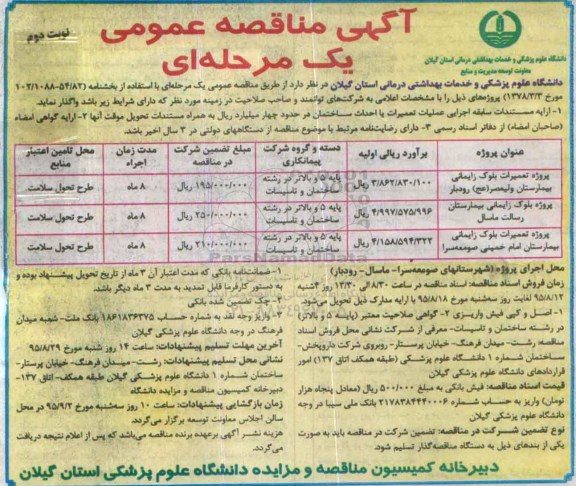 آگهی مناقصه عمومی
یک مرحله‌ای
نوبت دوم
دانشگاه علوم پزشکی و خدمات بهداشتی درمانی استان گیلان
معاونت توسعه مدیریت و منابع
دانشگاه علوم پزشکی و خدمات بهداشتی درمانی استان گیلان در نظر دارد از طریق مناقصه عمومی یک مرحله‌ای با استفاده از بخشنامه (۱۰۲/۱۰۸۸-۵۴/۸۲
مورخ ۱۳۷۸/۳/۳) پروژه‌های ذیل را با مشخصات اعلامی به شرکت‌های توانمند و صاحب صلاحیت در زمینه مورد نظر که دارای شرایط زیر باشد واگذار نماید.
۱- ارایه مستندات سابقه اجرایی عملیات تعمیرات یا احداث ساختمان در حدود چهار میلیارد ریال به همراه مستندات تحویل موقت آنها ۲- ارایه گواهی امضاء
(صاحبان امضاء) از دفاتر اسناد رسمی ۳- دارای رضایت‌نامه مرتبط با موضوع مناقصه از دستگاههای دولتی در ۳ سال اخیر باشد.
عنوان پروژه | برآورد ریالی اولیه | دسته و گروه شرکت پیمانکاری | مبلغ تضمین شرکت در مناقصه | مدت زمان اجراء | محل تامین اعتبار منابع
پروژه تعمیرات بلوک زایمانی بیمارستان ولیعصر(عج) رودبار | ۳/۸۶۲/۸۳۰/۱۰۰ ریال | پایه ۵ و بالاتر در رشته ساختمان و تاسیسات | ۱۹۵/۰۰۰/۰۰۰ ریال | ۸ ماه | طرح تحول سلامت
پروژه بلوک زایمانی بیمارستان رسالت ماسال | ۴/۹۹۷/۵۷۵/۹۹۶ ریال | پایه ۵ و بالاتر در رشته ساختمان و تاسیسات | ۲۵۰/۰۰۰/۰۰۰ ریال | ۸ ماه | طرح تحول سلامت
پروژه تعمیرات بلوک زایمانی بیمارستان امام خمینی صومعه‌سرا | ۴/۱۵۸/۵۹۴/۳۲۲ ریال | پایه ۵ و بالاتر در رشته ساختمان و تاسیسات | ۲۱۰/۰۰۰/۰۰۰ ریال | ۸ ماه | طرح تحول سلامت
محل اجرای پروژه (شهرستانهای صومعه‌سرا- ماسال- رودبار)
زمان فروش اسناد: اسناد مناقصه در ساعت ۸/۳۰ الی ۱۳/۳۰ روز ۴شنبه
۹۵/۸/۱۲ لغایت روز سه‌شنبه مورخ ۹۵/۸/۱۸ با ارایه مدارک ذیل تحویل می‌شود.
۱- اصل و کپی فیش واریزی ۲- گواهی صلاحیت معتبر (پایه ۵ و بالاتر)
در رشته ساختمان و تاسیسات- معرفی از شرکت نشانی محل فروش اسناد
مناقصه: رشت- میدان فرهنگ- خیابان پرستار- روبروی شرکت داروپخش-
ساختمان شماره ۱ دانشگاه علوم پزشکی (طبقه همکف اتاق ۱۳۷) امور
قراردادهای دانشگاه علوم پزشکی گیلان
قیمت اسناد مناقصه: فیش بانکی به مبلغ ۵۰۰/۰۰۰ ریال (معادل پنجاه هزار
تومان) واریز به حساب شماره ۲۱۷۸۳۸۴۴۴۰۰۰۶ بانک ملی سیبا در وجه
دانشگاه علوم پزشکی گیلان
نوع تضمین شرکت در مناقصه: تضمین شرکت در مناقصه باید به صورت
یکی از بندهای ذیل به دستگاه مناقصه‌گذار تسلیم شود.
۱- ضمانت‌نامه بانکی که مدت اعتبار آن ۳ ماه از تاریخ تحویل پیشنهاد بوده و
به دستور کارفرما قابل تمدید به مدت ۳ ماه دیگر باشد.
۲- چک تضمین شده بانکی
۳- واریز وجه نقد به شماره حساب ۱۸۶۱۸۳۶۳۷۵ بانک ملت- شعبه میدان
فرهنگ در وجه دانشگاه علوم پزشکی گیلان
آخرین مهلت تسلیم پیشنهادات: ساعت ۱۴ روز شنبه مورخ ۹۵/۸/۲۹
نشانی محل تسلیم پیشنهادات: رشت- میدان فرهنگ- خیابان پرستار-
ساختمان شماره ۱ دانشگاه علوم پزشکی گیلان طبقه همکف- اتاق ۱۳۷-
دبیرخانه کمیسیون مناقصه و مزایده دانشگاه
زمان بازگشایی پیشنهادات: ساعت ۱۰ روز سه‌شنبه مورخ ۹۵/۹/۲ در محل
سالن اجلاس معاونت توسعه برگزار می‌گردد.
هزینه نشر آگهی برعهده برنده مناقصه می‌باشد که پس از اعلام نتیجه دریافت
می‌گردد.
دبیرخانه کمیسیون مناقصه و مزایده دانشگاه علوم پزشکی استان گیلان